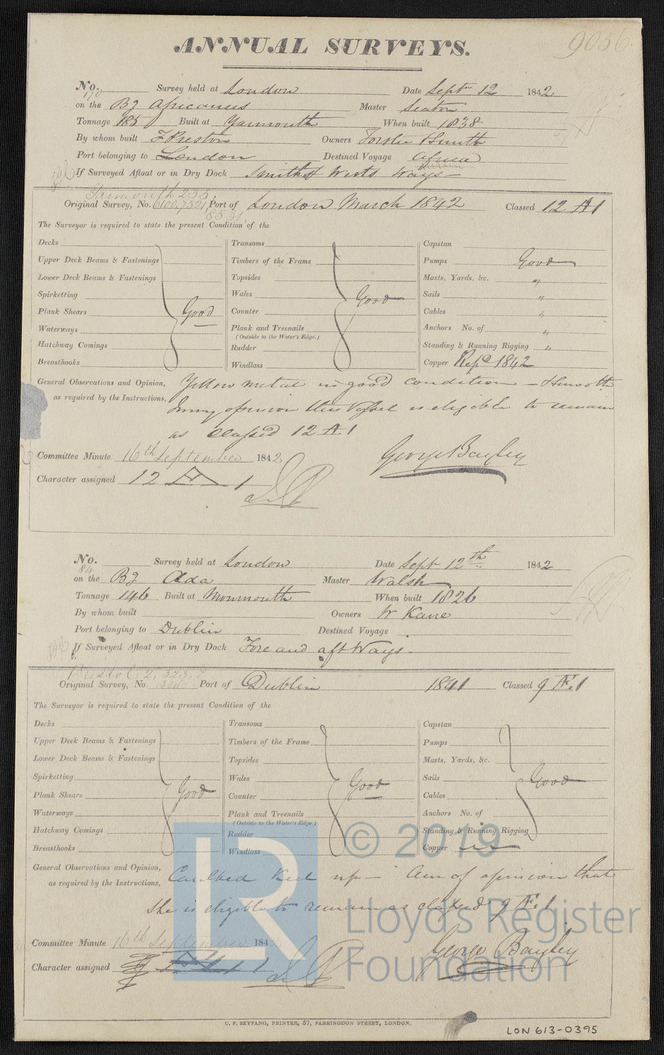 9056
ANNUAL SURVEYS.
No. 170 Survey held at London Date Sept 12 1842
on the Bg Africanus Master Seaton
Tonnage 185 Built at Yarmouth When built 1838
By whom built F Preston Owners Forster Smith
Port belonging to London Destined Voyage Africa
If Surveyed Afloat or in Dry Dock Smiths Ways
Yarmouth 255
Original Survey, No. Port of London March 1842 Classed 12 A1
The Surveyor is required to state the present Condition of the
Decks Transoms Capstan
Upper Deck Beams & Fastenings Timbers of the Frame Pumps Good
Lower Deck Beams & Fastenings Topsides Masts, Yards, &c. "
Spirketting Wales Sails "
Plank Shears Good Counter Good Cables "
Waterways Plank and Treenails Anchors No. of "
(Outside to the Water's Edge.)
Hatchway Comings Rudder Standing & Running Rigging "
Breasthooks Windlass Copper Repd 1842
General Observations and Opinion, Yellow metal in good condition & smooth
as required by the Instructions, In my opinion this Vessel is eligible to remain
as classed 12 A.1
Committee Minute 16th September 1842 George Bayley
Character assigned 12 A 1
No. 84 Survey held at London Date Sept 12th 1842
on the Bg Ada Master Walsh
Tonnage 146 Built at Monmouth When built 1826
By whom built Owners W Kane
Port belonging to Dublin Destined Voyage
If Surveyed Afloat or in Dry Dock Fore and aft Ways
Bristol
Original Survey, No. Port of Dublin 1841 Classed 9 Æ.1
The Surveyor is required to state the present Condition of the
Decks Transoms Capstan
Upper Deck Beams & Fastenings Timbers of the Frame Pumps
Lower Deck Beams & Fastenings Topsides Masts, Yards, &c.
Spirketting Wales Sails Good
Plank Shears Good Counter Good Cables
Waterways Plank and Treenails Anchors No. of
(Outside to the Water's Edge.)
Hatchway Comings Rudder Standing & Running Rigging
Breasthooks Windlass Copper
General Observations and Opinion, Caulked Keel up - Am of opinion that
as required by the Instructions, She is eligible to remain as classed 9 Æ 1
Committee Minute 16th September 184 George Bayley
Character assigned
LR © 2019
Lloyd's Register
Foundation
C. F. SEYFANG, PRINTER, 57, FARRINGDON STREET, LONDON.
LON 613-0395